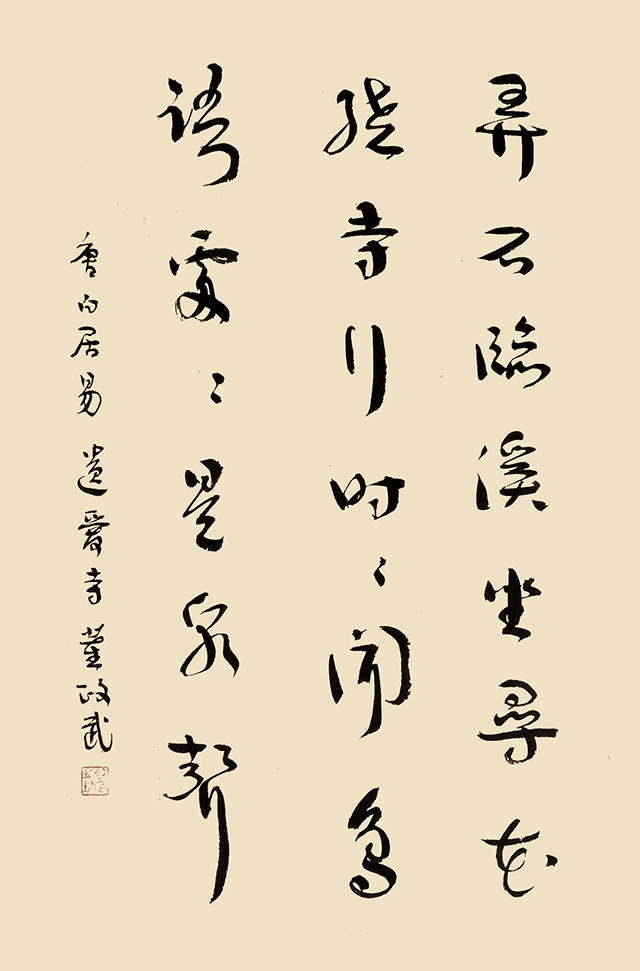 弄石臨溪坐尋花
繞寺行時〻聞鳥
語處〻是泉聲
唐白居易遺愛寺 董政武